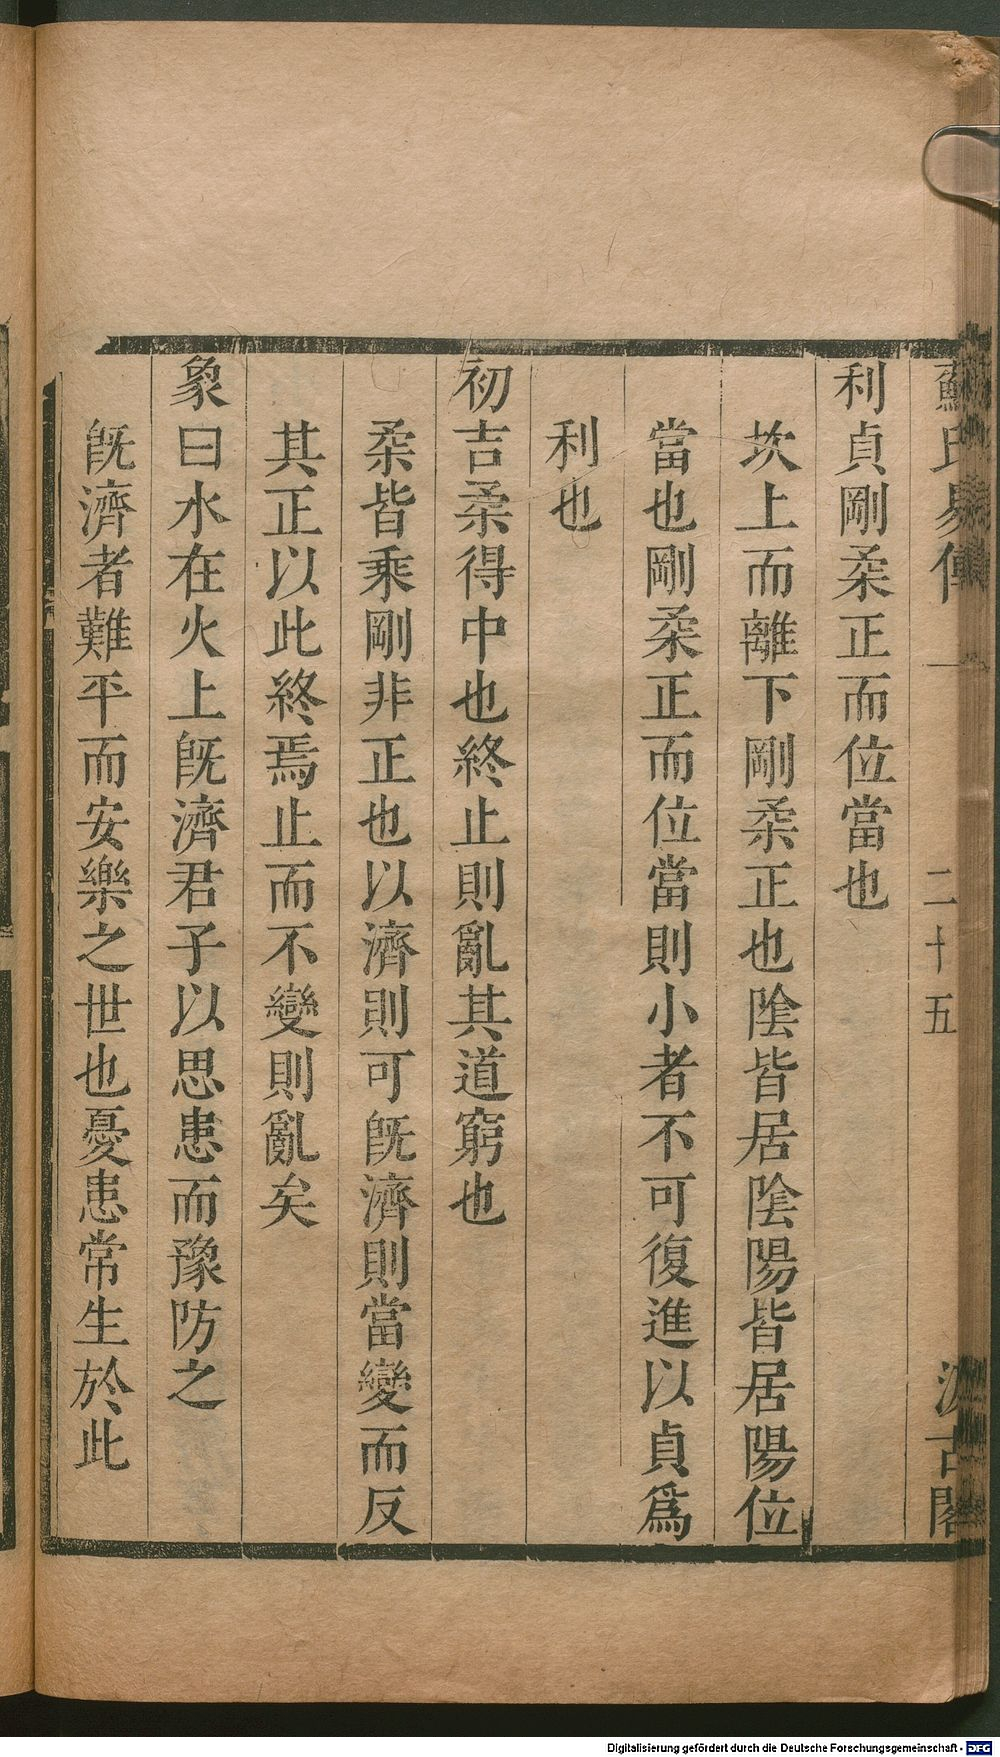 蘇氏易傳
二十五
汲古閣
利貞剛柔正而位當也
坎上而離下剛柔正也陰皆居陰陽皆居陽位
當也剛柔正而位當則小者不可復進以貞爲
利也
初吉柔得中也終止則亂其道窮也
柔皆乘剛非正也以濟則可旣濟則當變而反
其正以此終焉止而不變則亂矣
象曰水在火上旣濟君子以思患而豫防之
旣濟者難平而安樂之世也憂患常生於此
Digitalisierung gefördert durch die Deutsche Forschungsgemeinschaft - DFG